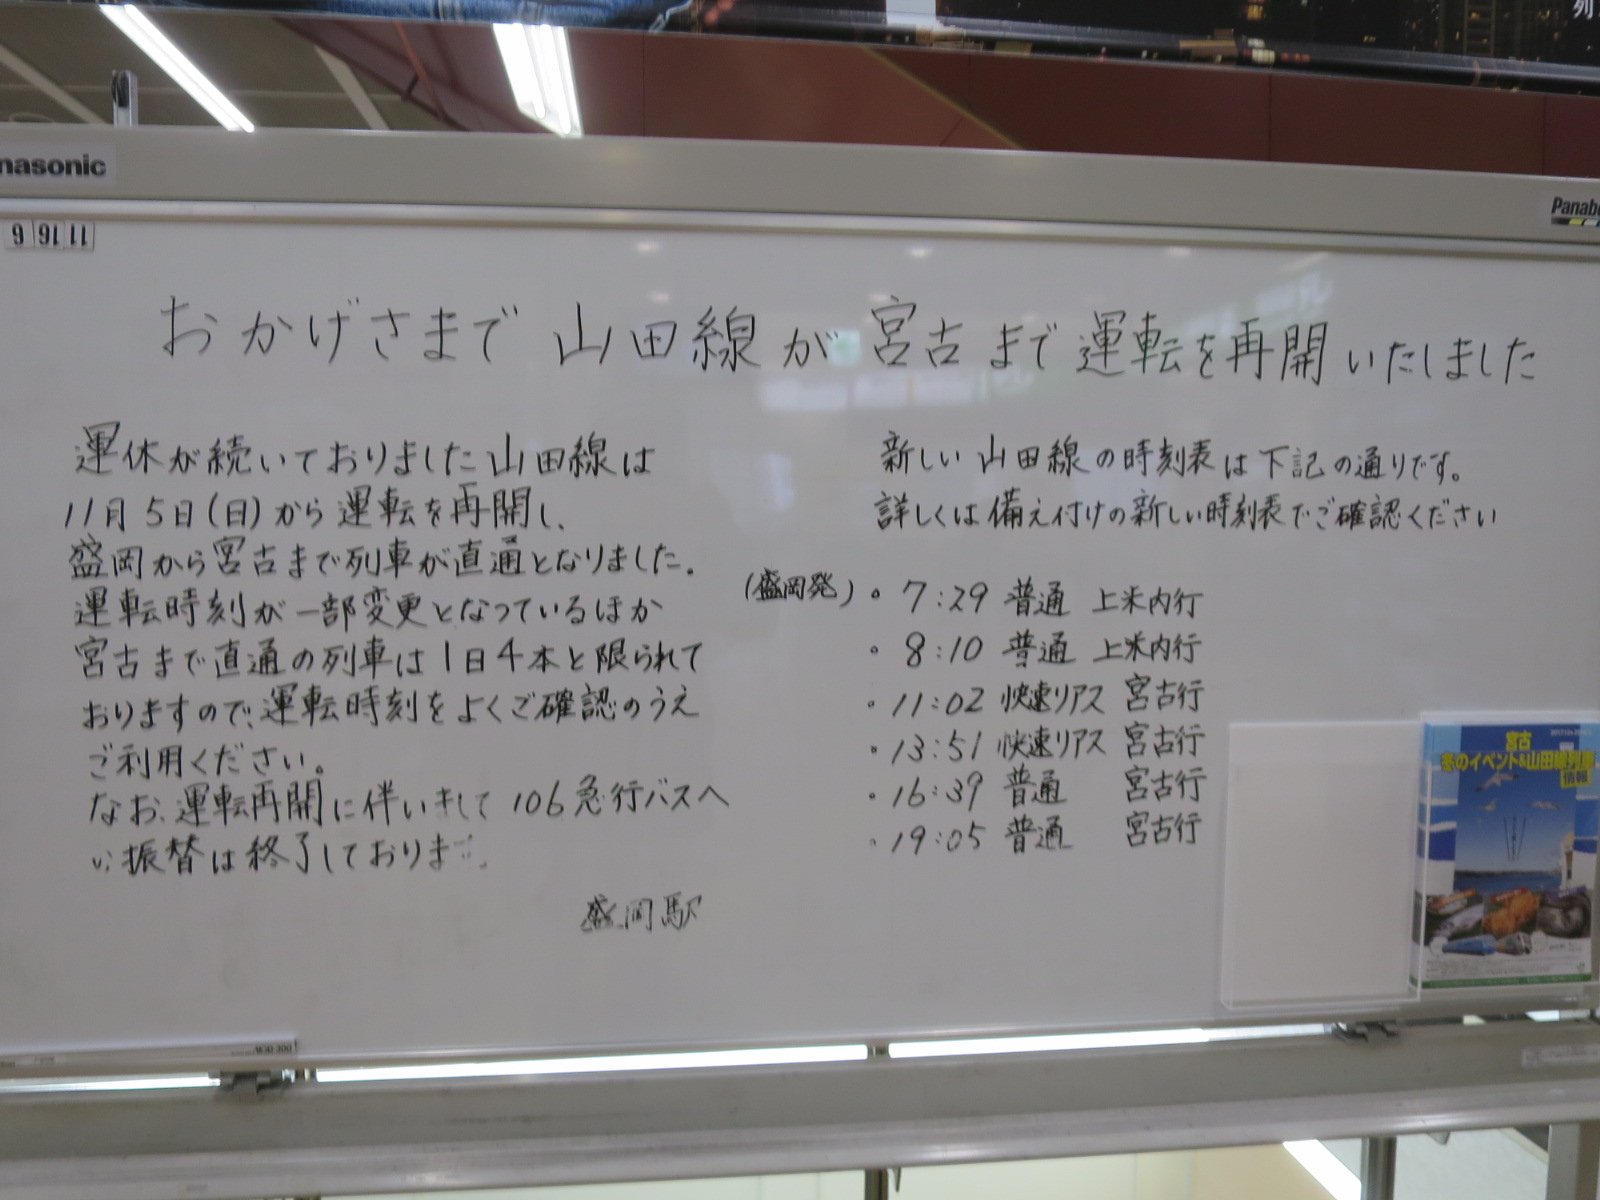 nasonic
Panab
おかげさまで 山田線が宮古まで運転を再開いたしました
運休が続いておりました山田線は
11月5日(日)から運転を再開し、
盛岡から宮古まで列車が直通となりました。
運転時刻が一部変更となっているほか
宮古まで直通の列車は1日4本と限られて
おりますので、運転時刻をよくご確認のうえ
ご利用ください。
なお、運転再開に伴いまして106急行バスへ
い振替は終了しております。
盛岡駅
新しい山田線の時刻表は下記の通りです。
詳しくは備え付けの新しい時刻表でご確認ください
(盛岡発)・7:29 普通 上米内行
・8:10 普通 上米内行
・11:02 快速リアス 宮古行
・13:51 快速リアス 宮古行
・16:39 普通 宮古行
・19:05 普通 宮古行
宮古
冬のイベント&山田線列車
情報
列